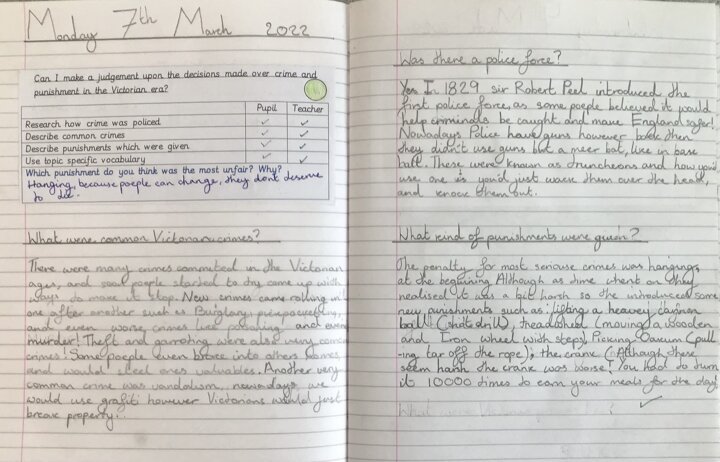 Monday 7th March 2022
Can I make a judgement upon the decisions made over crime and
punishment in the Victorian era?
Pupil Teacher
Research how crime was policed ✓ ✓
Describe common crimes ✓ ✓
Describe punishments which were given ✓ ✓
Use topic specific vocabulary ✓ ✓
Which punishment do you think was the most unfair? Why?
Hanging, because poeple can change, they dont deserve
to die.
What were common Victorian crimes?
There were many crimes commeted in the Victorian
ages, and soon poeple started to try come up with
ways to make it stop. New crimes came rolling in
one after another such as Burglary, pickpocketing,
and even worse crimes like poaching and even
murder! Theft and garroting were also very common
crimes! Some poeple even broke into others homes
and would steel ones valuables. Another very
common crime was vandalism, nowadays we
would use grafiti however Victorians would just
break property.
Was there a police force?
Yes In 1829 sir Robert Peel introduced the
first police force, as some poeple believed it would
help criminals be caught and make England safer!
Nowadays Police have guns however back then
they didn't use guns but a meer bat, like in base
ball. These were known as truncheons and how you'd
use one is you'd just wack them over the head,
and knock them out.
What kind of punishments were given?
The penalty for most seriouse crimes was hanging,
at the begining Although as time whent on they
realised it was a bit harsh so the introduced some
new punishments such as: lifting a heavey cannon
ball (shot drill), treadwheel (moving a wooden
and Iron wheel with steps), Picking Oakum (pull
-ing tar off the rope), the crank. Although these
seem harsh the crank was worse! You had to turn
it 10000 times to earn your meals for the day.
✓